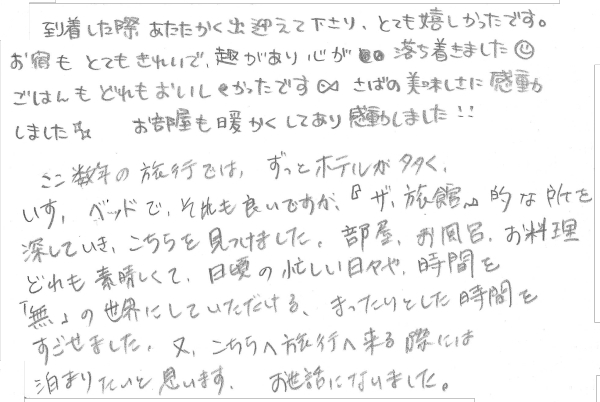 到着した際 あたたかく出迎えて下さり、とても嬉しかったです。
お宿も とてもきれいで、趣があり 心が 落ち着きました☺
ごはんも どれもおいしかったです∞ さばの美味しさに 感動
しました お部屋も暖かくしてあり 感動しました!!
ここ数年の旅行では、ずっとホテルが多く、
いす、ベッドで、それも良いですが、『ザ、旅館。』的な所を
深していき、こちらを見つけました。部屋、お風呂、お料理
どれも素晴しくて、日頃の忙しい日々や、時間を
「無」の世界にしていただける、まったりとした時間を
すごせました。又、こちらへ旅行へ来る際には
泊まりたいと思います。 お世話になりました。